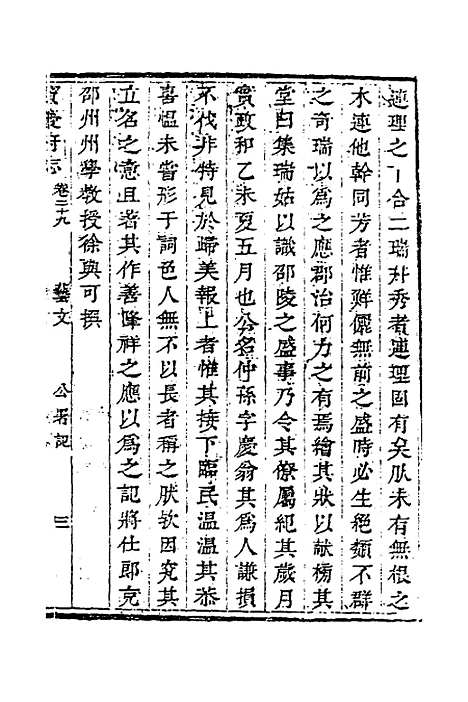 連理之一合二瑞幷秀者連理固有矣然未有無根之
木連他幹同芳者惟鮮儷無前之盛時必生絕類不群
之奇瑞以為之應郡治何力之有焉繪其狀以献榜其
堂曰集瑞姑以識邵陵之盛事乃令其僚屬紀其歲月
實政和乙未夏五月也公名仲孫字慶翁其為人謙損
不伐非特見於歸美報上者惟其接下臨民温温其恭
喜愠未嘗形于詞色人無不以長者稱之厌欽因究其
立名之意且著其作善降祥之應以為之記將仕郎充
邵州州學教授徐與可撰
寶慶府志 卷三十九 藝文 公署記 三